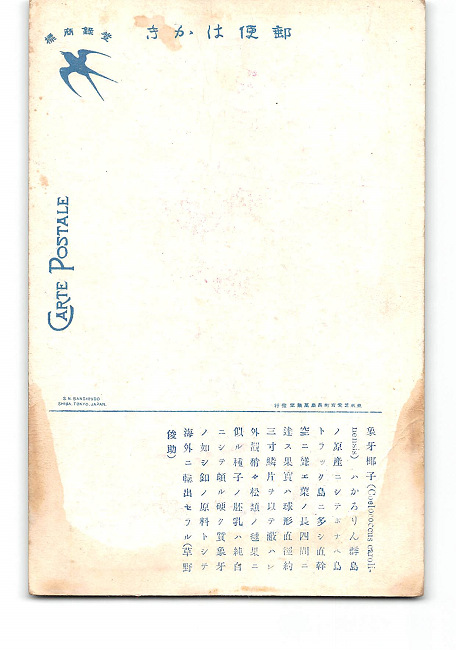 標商録登
きかは便郵
CARTE POSTALE
S.N. BANSHINDO
SHIBA, TOKYO, JAPAN.
象牙椰子(Coelococcus caroli-
nensis) ハかろりん群島
ノ原産ニシテポナペ島
トラック島ニ多シ直幹
空ニ聳エ葉ノ長四間ニ
達ス果實ハ球形直徑約
三寸鱗片ヲ以テ蔽ハレ
外觀稍々松類ノ毬果ニ
似ル種子ノ胚乳ハ純白
ニシテ頗ル硬ク質象牙
ノ如シ釦ノ原料トシテ
海外ニ輸出セラル(草野
俊助)